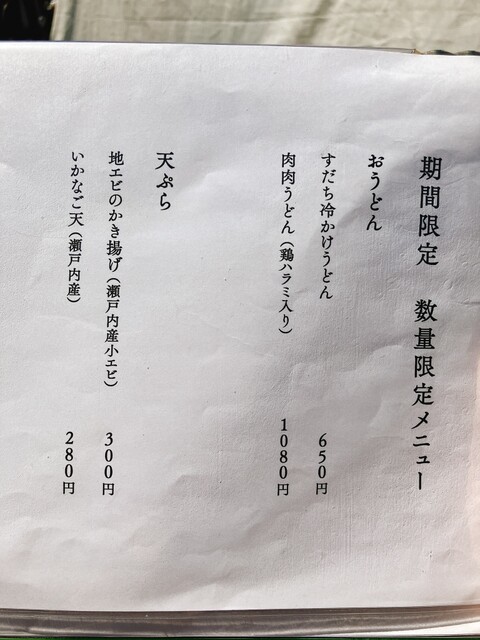 期間限定　数量限定メニュー
おうどん
すだち冷かけうどん　650円
肉肉うどん（鶏ハラミ入り）　1080円
天ぷら
地エビのかき揚げ（瀬戸内産小エビ）　300円
いかなご天（瀬戸内産）　280円